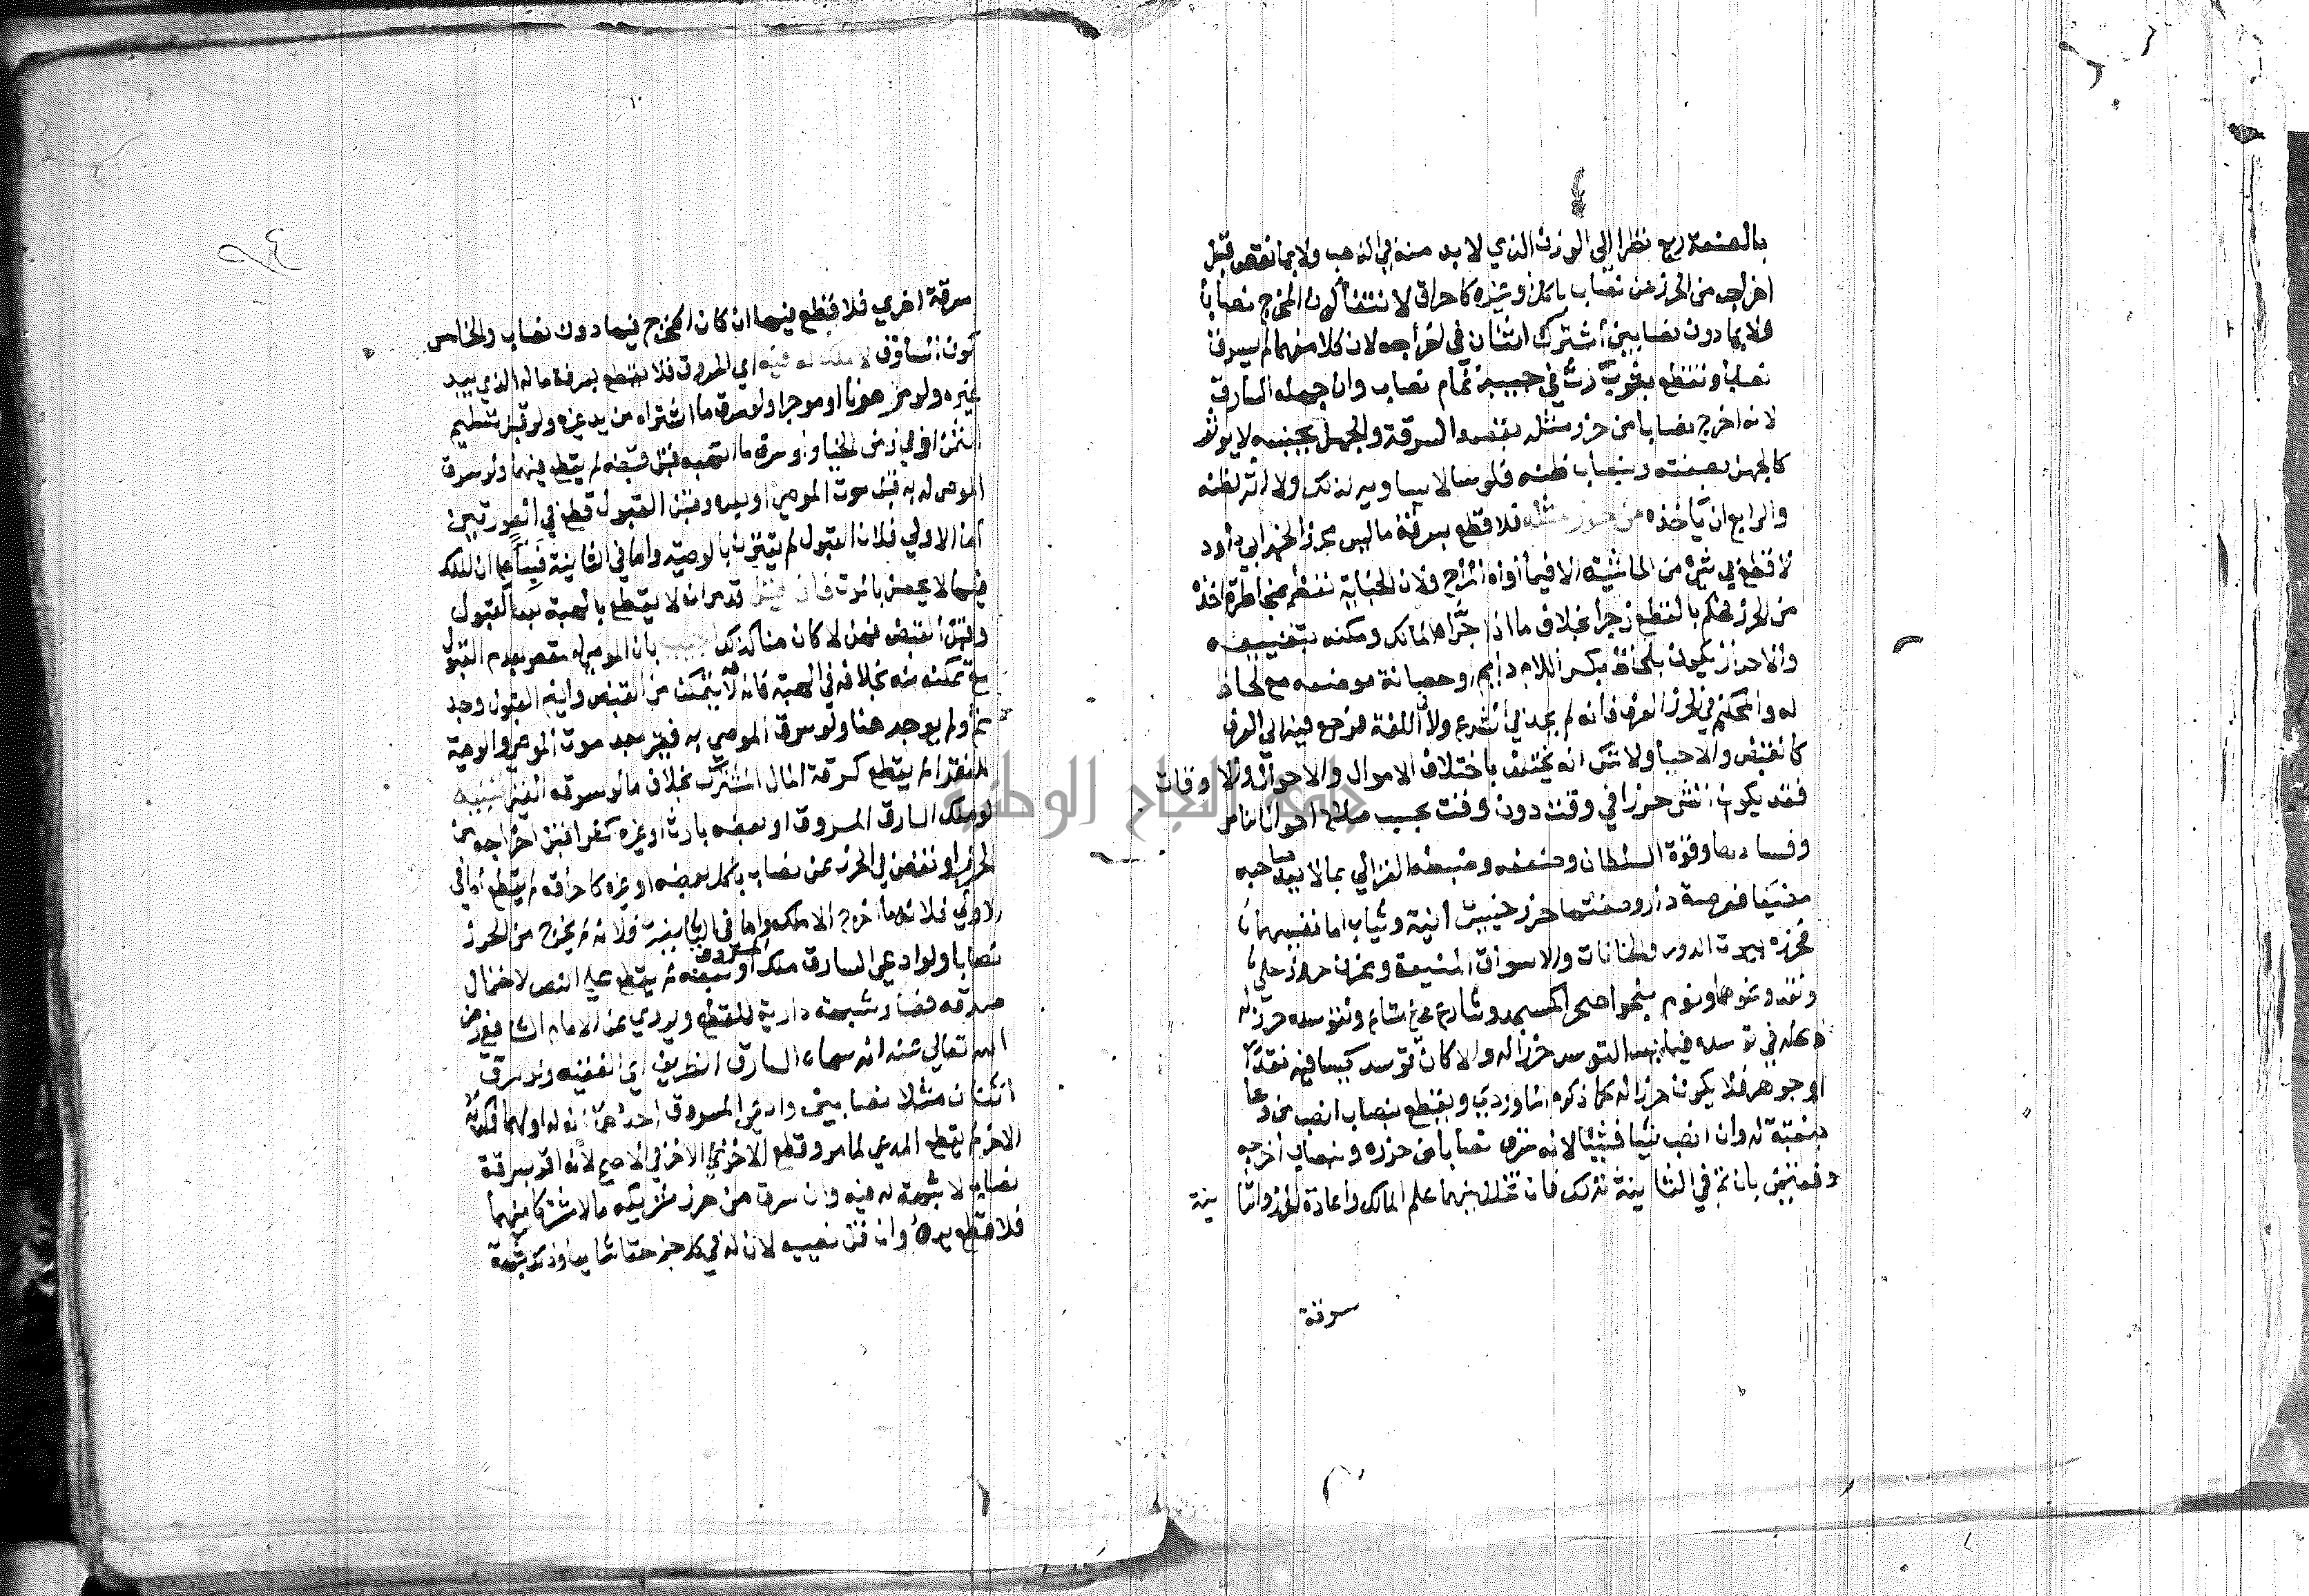 بالصنعة ربع نظرا الى الوزن الذي لا بد منه في الذهب ولا بما نقص قبل
اخراجه من الحرز عن نصاب باكل وغيره كاحراق لانتفا كون المخرج نصابا
ولا بما دون نصابين اشترك اثنان في اخراجه لان كلا منهما لم يسرق
نصابا ويقطع بثوب رث في جيبه تمام نصاب وان جهله السارق
لانه اخرج نصابا من حرز مثله بقصد السرقة والجهل بجنسه لا يوثر
كالجهل بصفته وبنصاب ظنه فلوسا لا يساويه لذلك ولا اثر لظنه
والرابع ان ياخذه من حرز مثله فلا قطع بسرقة ما ليس محرزا لخبر ابي داود
لا قطع في شي من الماشية الا فيما أواه المراح ولان الجناية تعظم بمخاطرة اخذه
من الحرز فحكم بالقطع زجرا بخلاف ما اذا جرأه المالك ومكنه بتضييعه
والاحراز يكون بلحاظ بكسر اللام دايم وحصانة موضعه مع لحاظ
له والمحكم في الحرز العرف فانه لم يحد في الشرع ولا اللغة فرجع فيه الى العرف
كالقبض والاحيا ولا شك انه يختلف باختلاف الاموال والاحوال والاوقات
فقد يكون الشي حرزا في وقت دون وقت بحسب صلاح احوال الناس
وفسادها وقوة السلطان وضعفه وضبطه الغزالي بما لا يعد صاحبه
مضيعا فعرصة دار وصفتها حرز خسيس آنية وثياب اما نفيسهما
فحرزه بيوت الدور والخانات والاسواق المنيعة ومخزن حرز حلي
ونقد ونحوهما ونوم بنحو صحرا كمسجد وشارع على متاع وتوسده حرز له
ومحله في توسده فيما يعد التوسد حرزا له والا كان توسد كيسا فيه نقد
او جوهر فلا يكون حرزا له كما ذكره الماوردي ويقطع بنصاب انصب من وعا
بنقبه له وان انصب شيا فشيا لانه سرق نصابا من حرزه وبنصاب اخرجه
دفعتين بان تم في الثانية لذلك فان تخلل بينهما علم المالك واعادة الحرز فالثانية
سرقة
سرقة اخري فلا قطع فيها ان كان المخرج فيما دون نصاب والخامس
كون السارق لا ملك له فيه اي المسروق فلا يقطع بسرقة ماله الذي بيد
غيره ولو مرهونا او موجرا ولو سرق ما اشتراه من يد غيره ولو قبل تسليم
الثمن او في زمن الخيار او سرق ما اتهبه قبل قبضه لم يقطع فيهما ولو سرق
الموصى له به قبل موت الموصي او بعده وقبل القبول قطع في الصورتين
اما الاولي فلان القبول لم يقترن بالوصية واما في الثانية فبناء على ان الملك
فيها لا يحصل بالموت فان قيل قد مر انه لا يقطع بالهبة بعد القبول
وقبل القبض فهل لا كان هنا كذلك اجيب بان الموصى له مقصر بعدم القبول
مع تمكنه منه بخلافه في الهبة فانه لا يتمكن من القبض وايضا القبول وجد
ثم ولم يوجد هنا ولو سرق الموصى به فقير بعد موت الموصي والوصية
للفقرا لم يقطع كسرقة المال المشترك بخلاف ما لو سرقه الغني تنبيه
لو ملك السارق المسروق او بعضه بارث او غيره كشرا قبل اخراجه من
الحرز او نقص في الحرز عن نصاب باكل بعضه او غيره كاحراقه لم يقطع اما في
الاولي فلانه ما اخرج الا ملكه واما في الثانية فلانه لم يخرج من الحرز
نصابا ولو ادعى السارق ملك المسروق او بعضه لم يقطع على النص لاحتمال
صدقه فصار شبهة دارية للقطع ويروي عن الامام الشافعي رضي
الله تعالى عنه انه سماه السارق الظريف اي الفقيه ولو سرق
اثنان مثلا نصابين وادعى المسروق احدهما انه له او لهما فكذبه
الاخر لم يقطع المدعي لما مر وقطع الاخر في الاصح لانه اقر بسرقة
نصاب لا شبهة له فيه وان سرق من حرز شريكه مالا مشتركا بينهما
فلا قطع به وان قل نصيبه لان له في كل جزء حقا شايعا وذلك شبهة